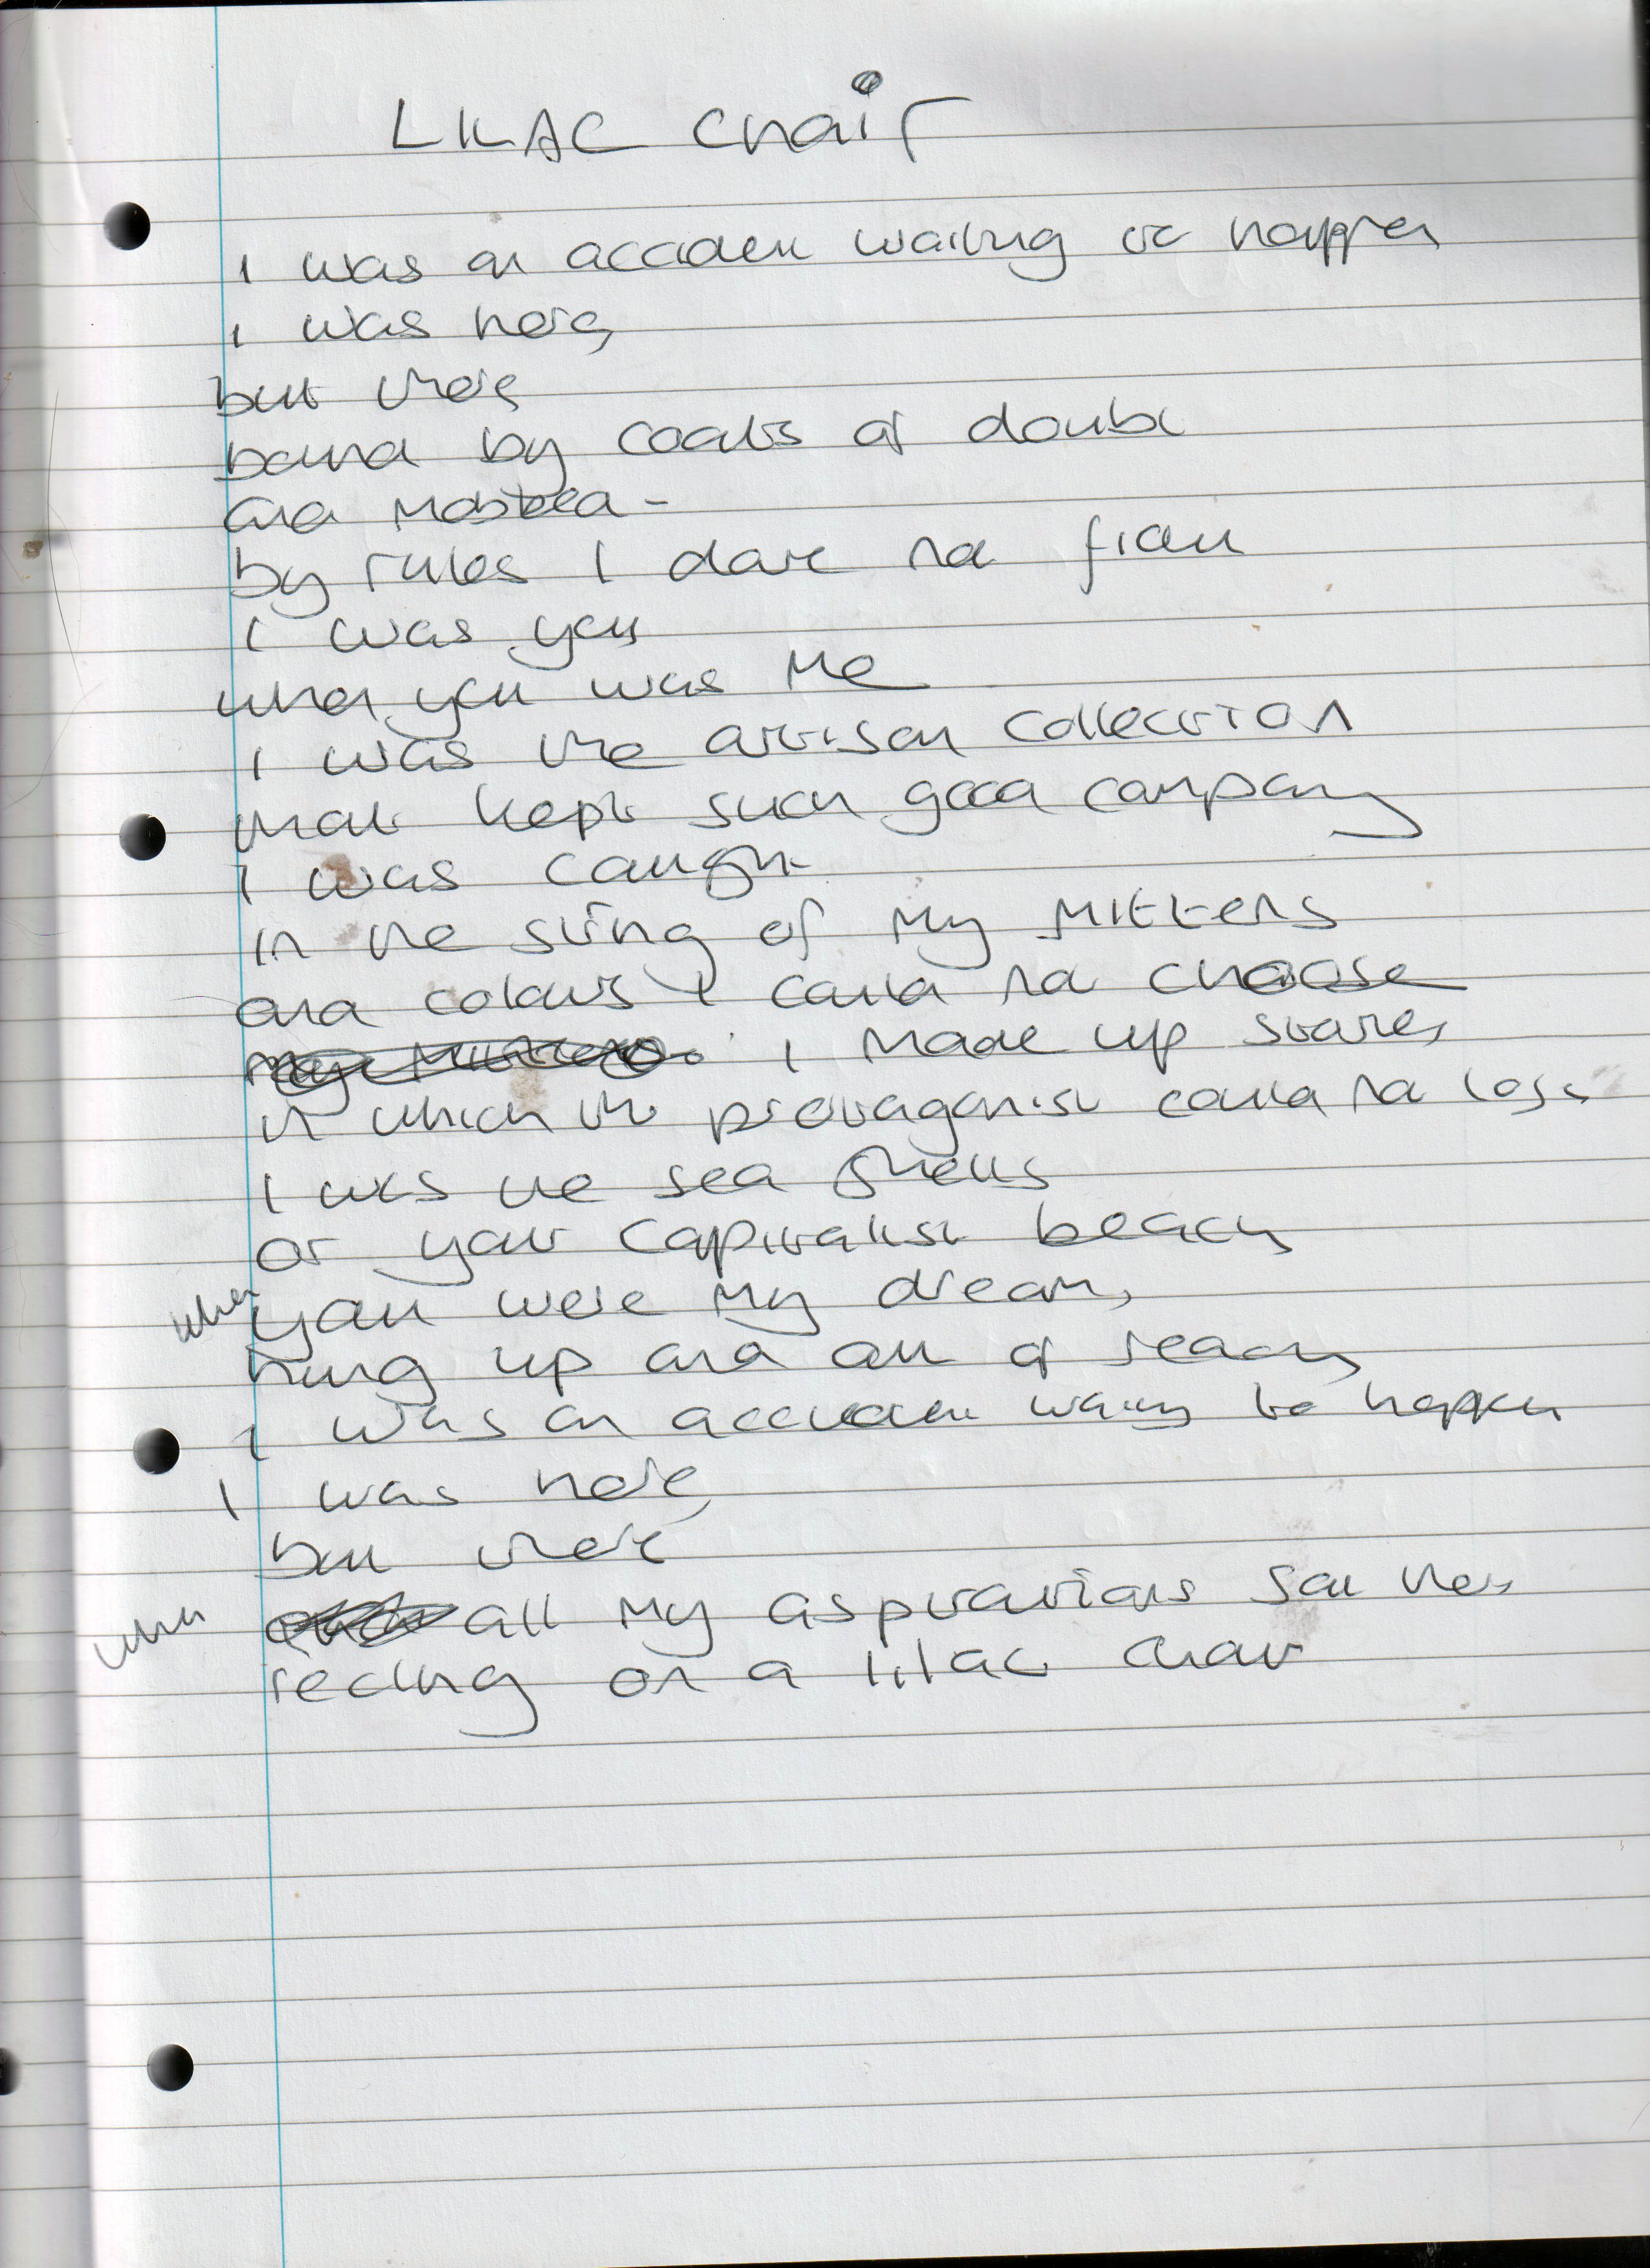 LILAC Chair
I was an accident waiting to happen
I was here,
but there
bound by coats of doubt
and masked -
by rules I dare not flout
I was you
when you was me
I was the artisan collection
that kept such good company
I was caught
in the string of my mittens
and colours I could not choose
I made up stories
in which the protagonist could not lose
I was the sea shells
on your capitalist beach
when you were my dream,
hung up and out of reach
I was an accident waiting to happen
I was here,
but there
when all my aspirations sat there
on a lilac chair